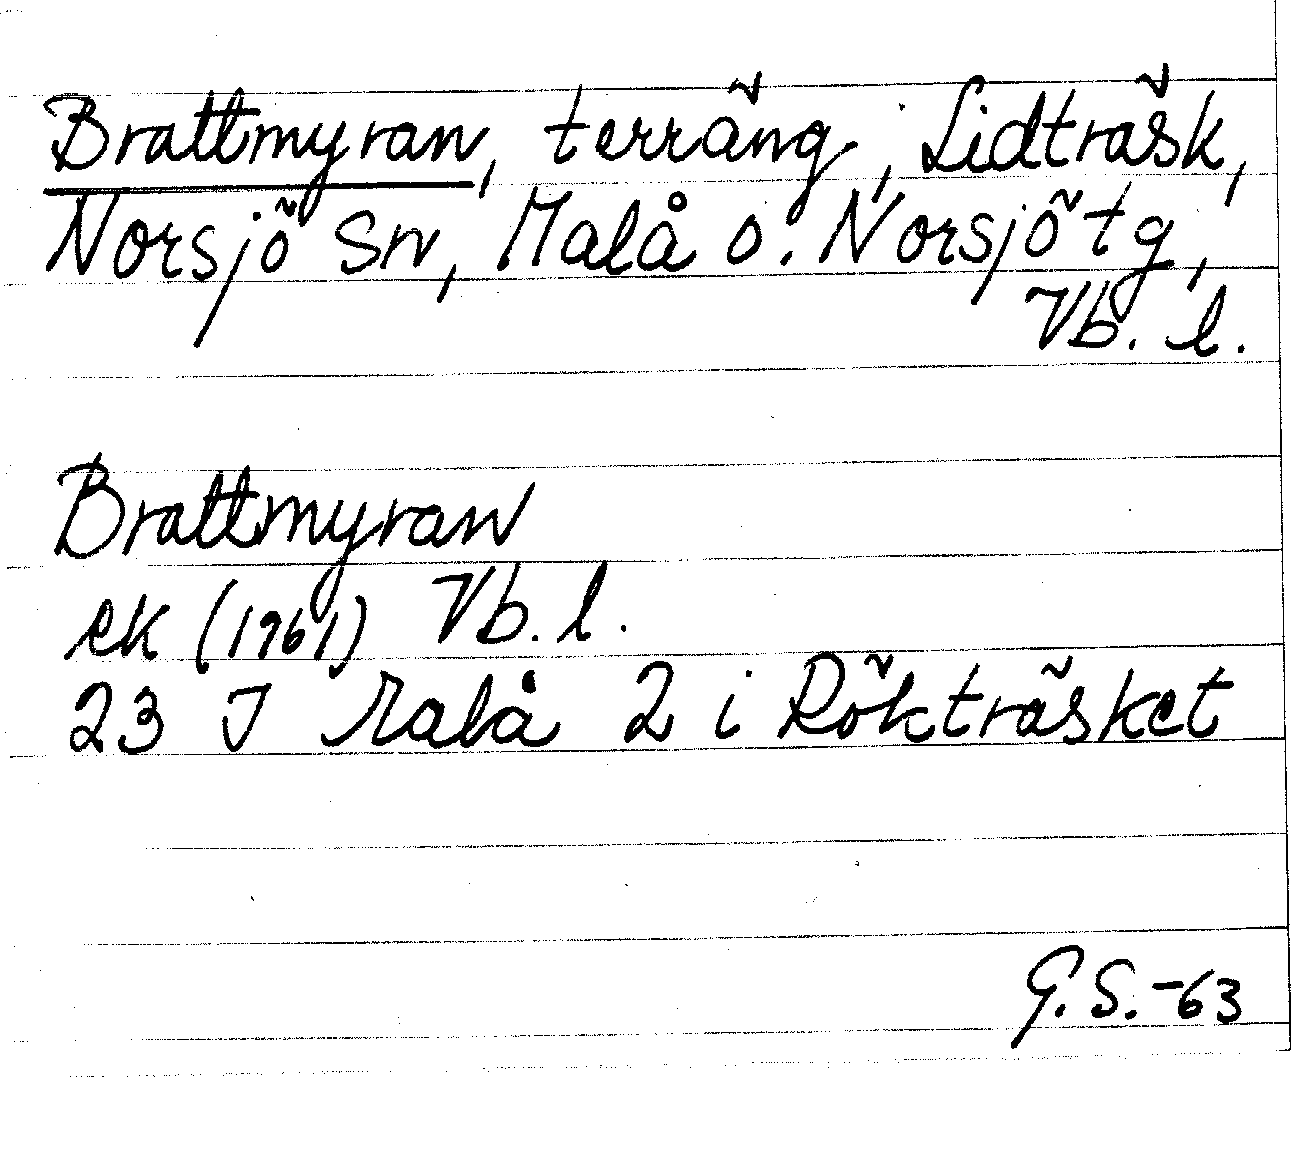 Brattmyran, terräng, Lidträsk,
Norsjö sn, Malå o. Norsjö tg,
Vb. l.
Brattmyran
ek (1961) Vb. l.
23 J Malå 2 i Rökträsket
G.S.-63